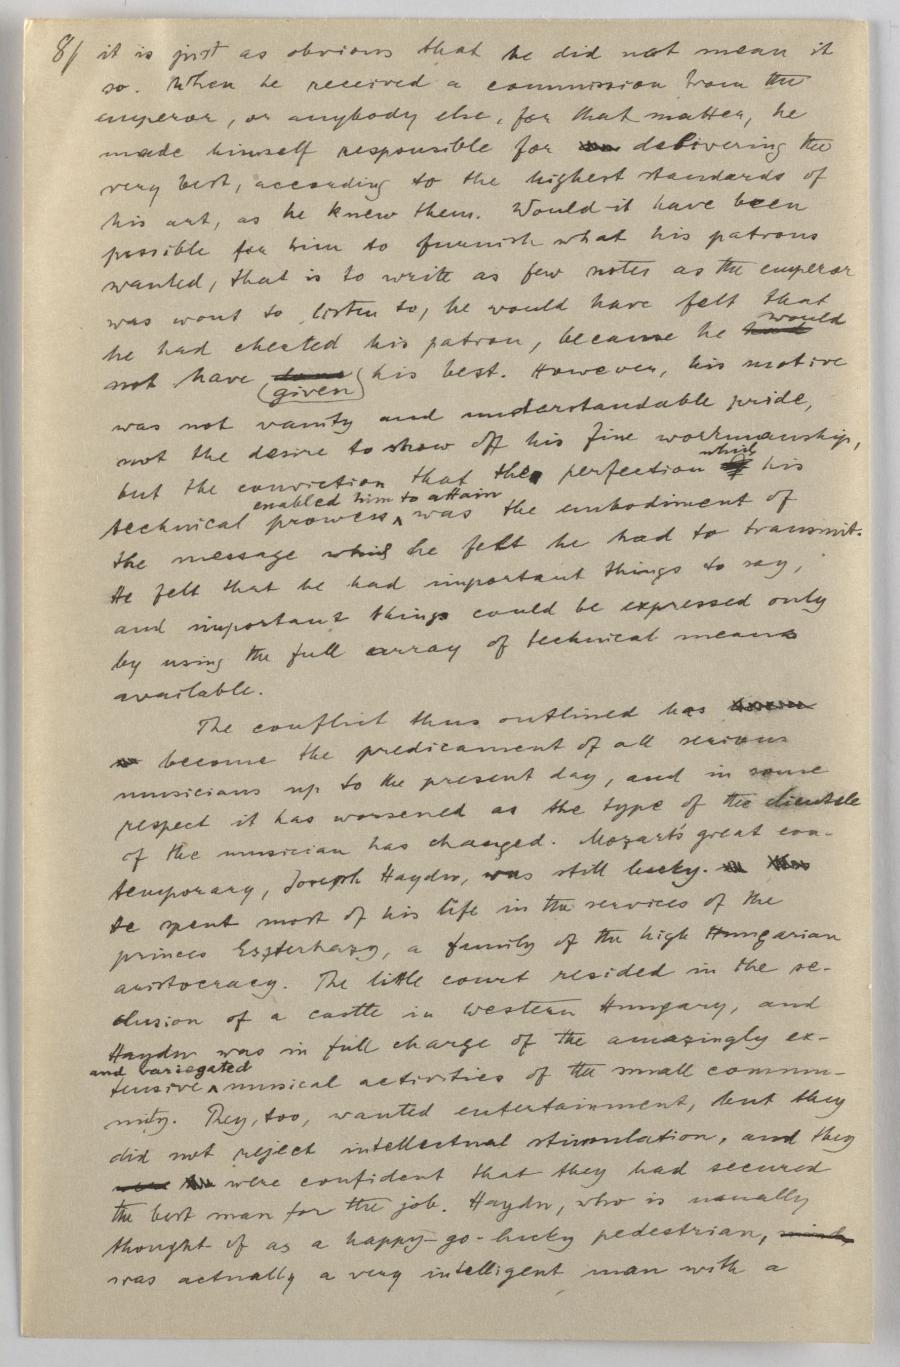 8/ it is just as obvious that he did not mean it
so. When he received a commission from the
emperor, or anybody else, for that matter, he
made himself responsible for delivering the
very best, according to the highest standards of
his art, as he knew them. Would it have been
possible for him to furnish what his patrons
wanted, that is to write as few notes as the emperor
was wont to listen to, he would have felt that
he had cheated his patron, because he had would
not have given his best. However, his motive
was not vanity and understandable pride,
not the desire to show off his fine workmanship,
but the conviction that the perfection which his
technical prowess enabled him to attain was the embodiment of
the message which he felt he had to transmit.
He felt that he had important things to say,
and important things could be expressed only
by using the full array of technical means
available.
The conflict thus outlined has
become the predicament of all serious
musicians up to the present day, and in some
respect it has worsened as the type of the clientele
of the musician has changed. Mozart's great con-
temporary, Joseph Haydn, was still lucky.
He spent most of his life in the services of the
princes Eszterhazy, a family of the high Hungarian
aristocracy. The little court resided in the se-
clusion of a castle in western Hungary, and
Haydn was in full charge of the amazingly ex-
tensive and variegated musical activities of the small commu-
nity. They, too, wanted entertainment, but they
did not reject intellectual stimulation, and they
were confident that they had secured
the best man for the job. Haydn, who is usually
thought of as a happy-go-lucky pedestrian,
was actually a very intelligent man with a